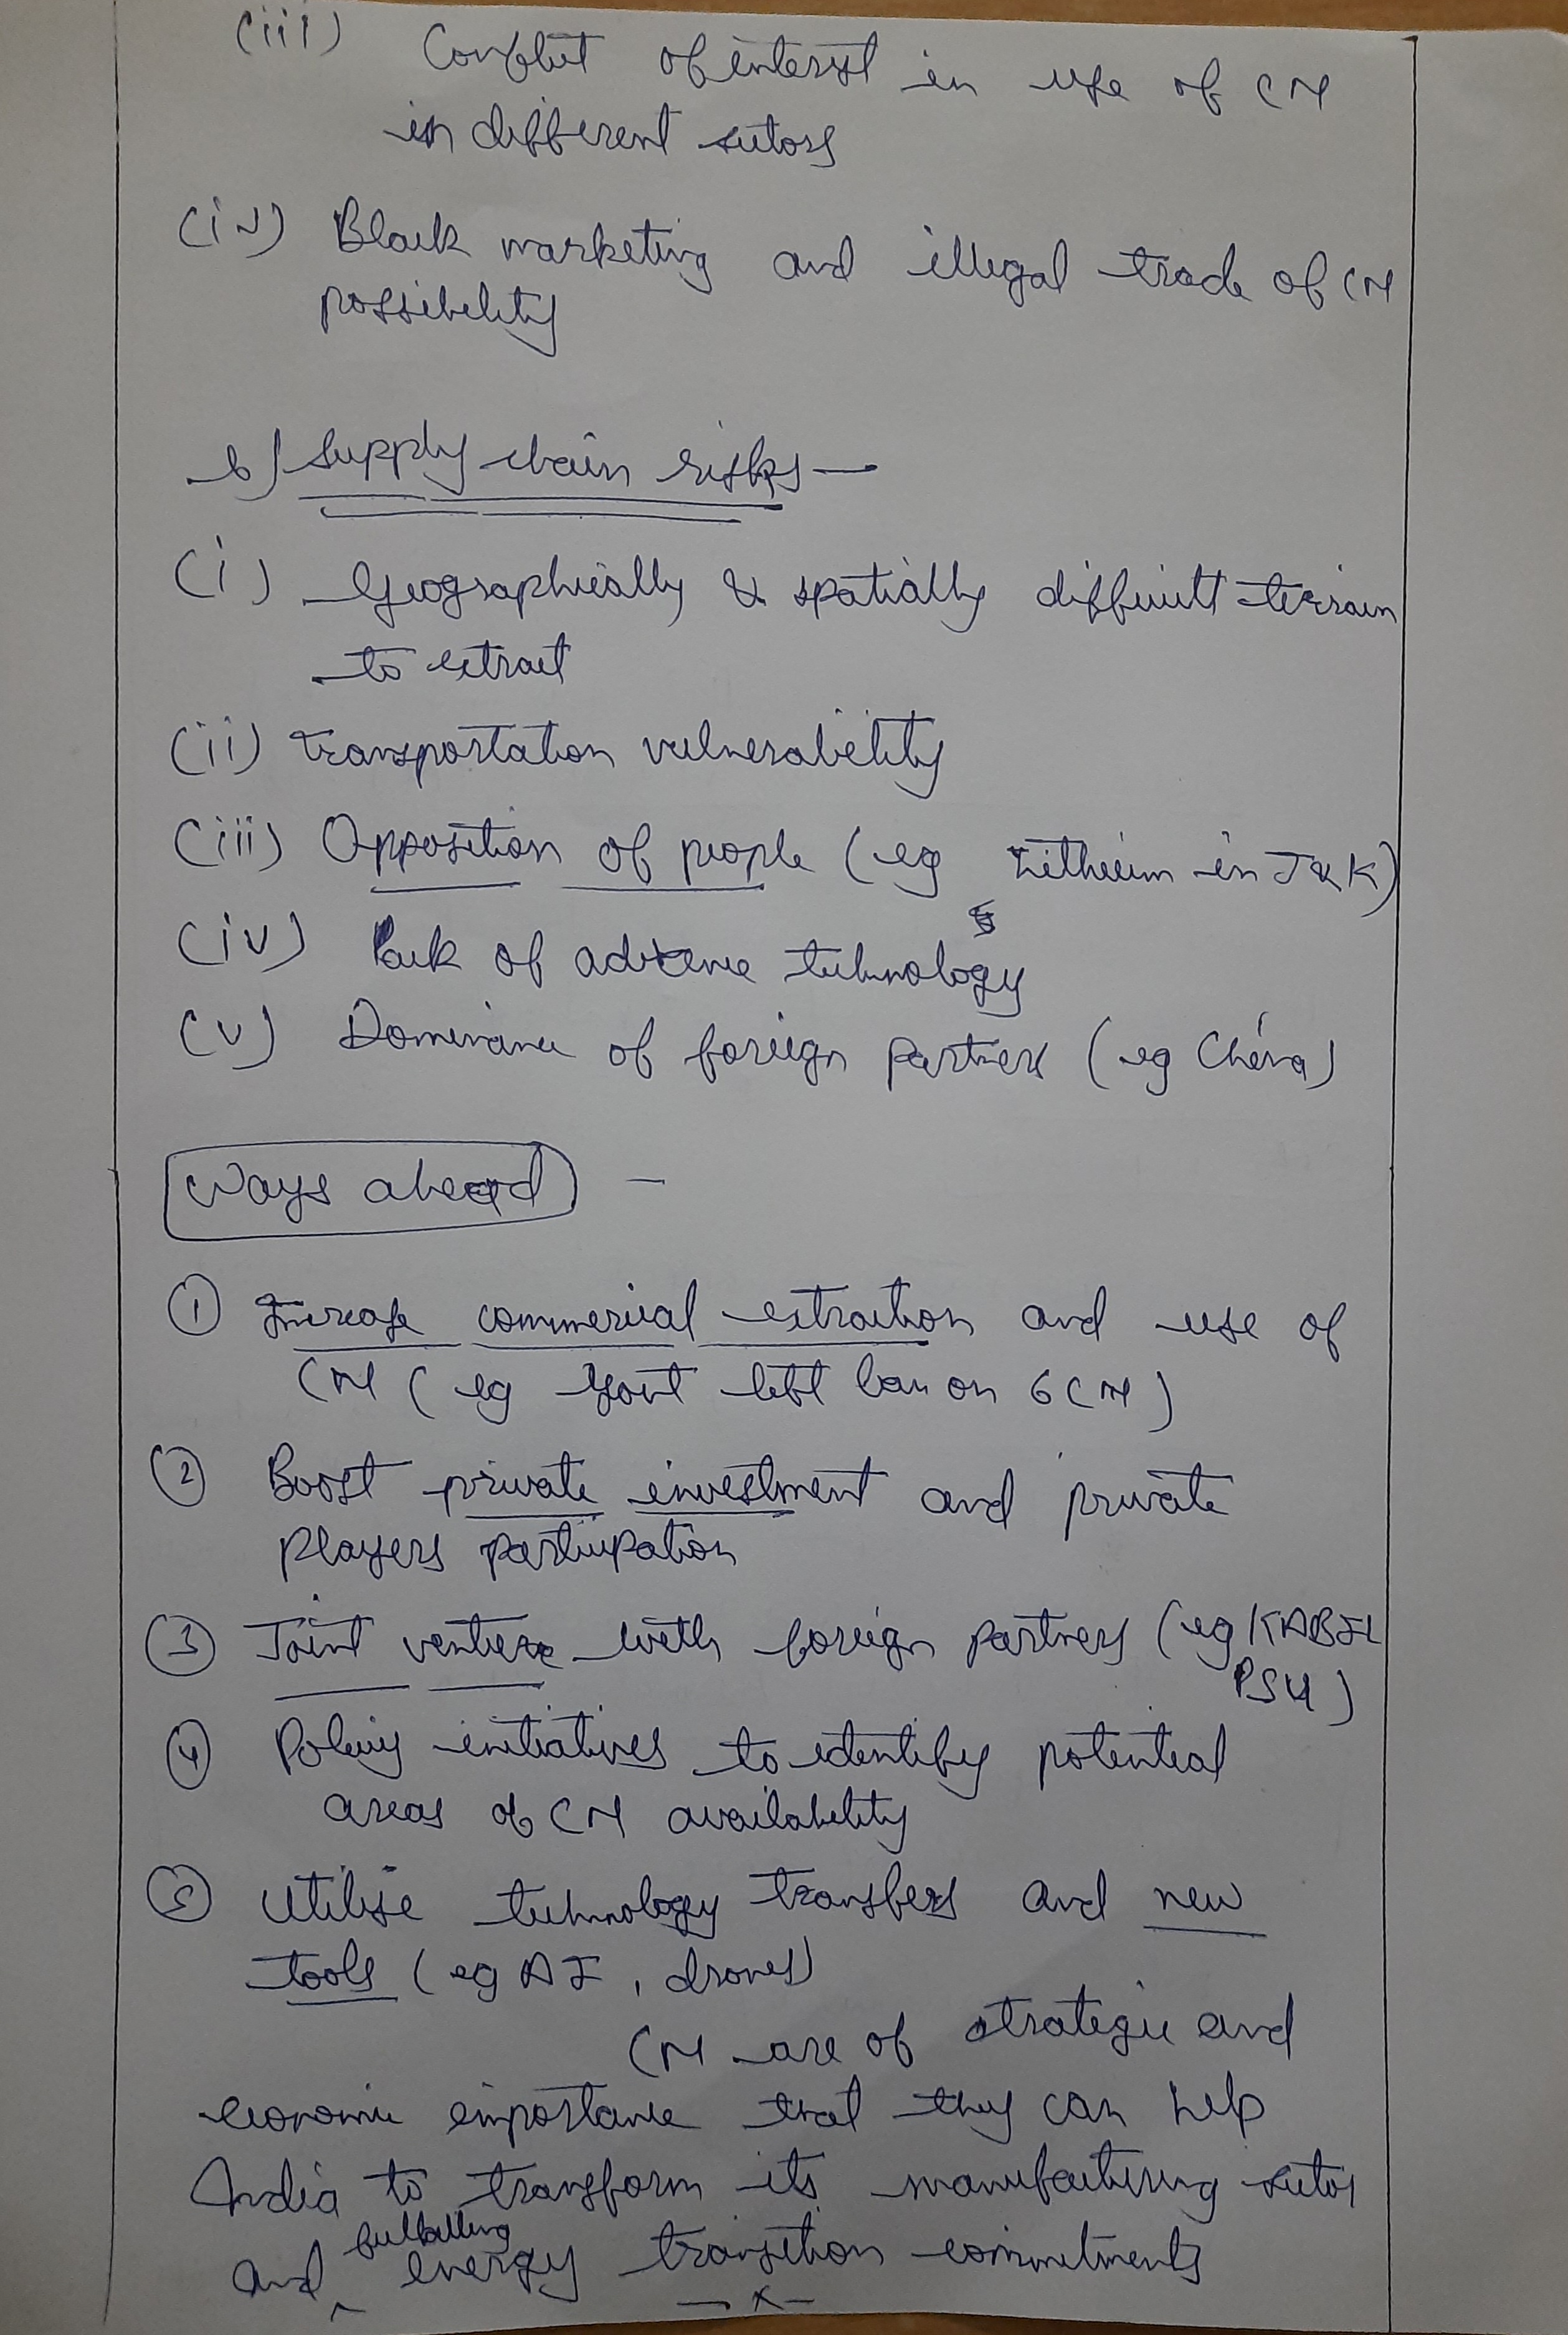 (iii) Conflict of interest in use of CM
in different sectors
(iv) Black marketing and illegal trade of CM
possibility
b) Supply chain risks —
(i) Geographically & spatially difficult terrain
to extract
(ii) Transportation vulnerability
(iii) Opposition of people (eg Lithium in J&K)
(iv) Lack of advance technology
(v) Dominance of foreign partners (eg China)
Ways ahead —
① Increase commercial extraction and use of
CM (eg Govt left ban on 6 CM)
② Boost private investment and private
players participation
③ Joint venture with foreign partners (eg KABIL
PSU)
④ Policy initiatives to identify potential
areas of CM availability
⑤ Utilise technology transfers and new
tools (eg AI, drones)
CM are of strategic and
economic importance that they can help
India to transform its manufacturing sector
and fulfilling energy transition commitments
— x —